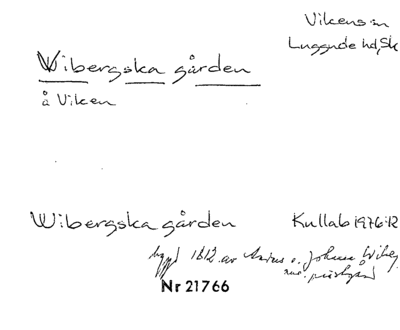 Vikens sn
Luggude hd, Sk
Wibergska gården
å Viken
Wibergska gården Kullab 1976:12
byggd 1812 av Anders o. Johan Wiberg
nuv. prästgård
Nr 21766